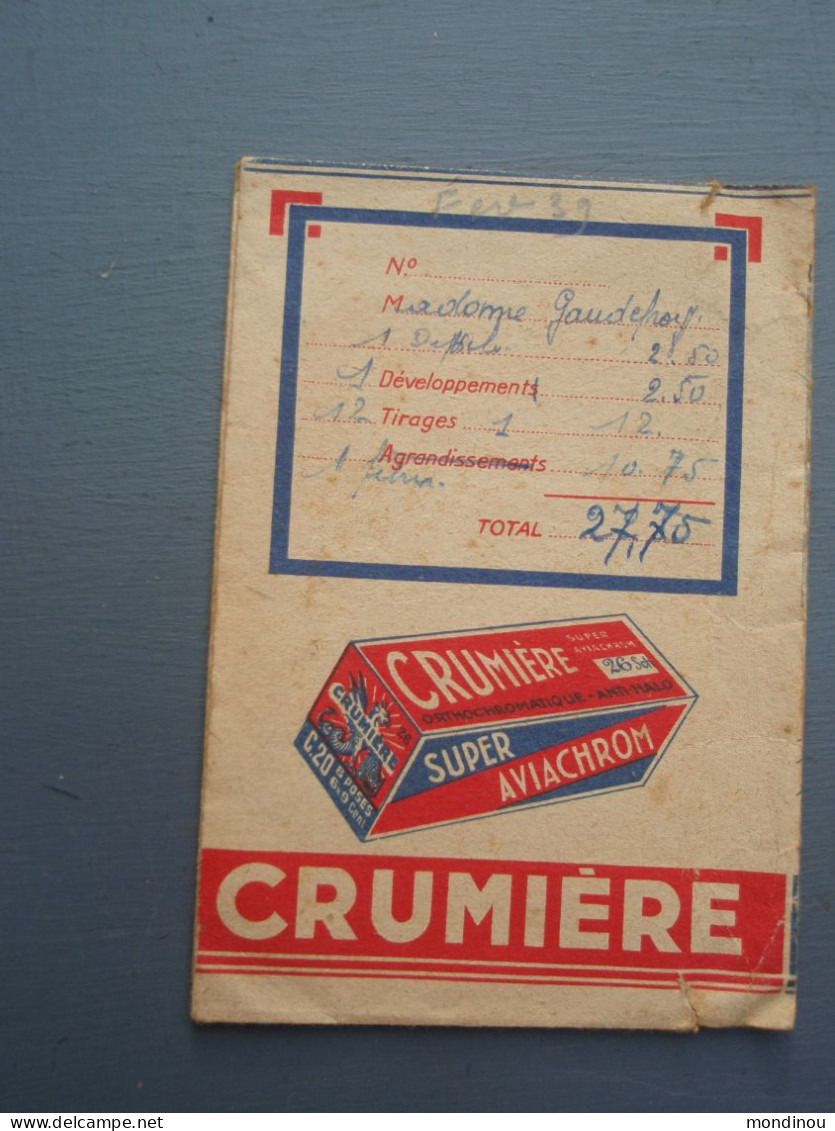 Fev 39
N°
Madame Gaudefroy.
1 2.50
1 Développements 2.50
12 Tirages 1 12.
Agrandissements 10.75
1 film.
TOTAL 27,75
CRUMIÈRE SUPER AVIACHROM 26 Sch
ORTHOCHROMATIQUE - ANTI-HALO
CRUMIÈRE 26
SUPER AVIACHROM
C.20 6 POSES 6x9 Cent.
CRUMIÈRE
delcampe.net
mondinou